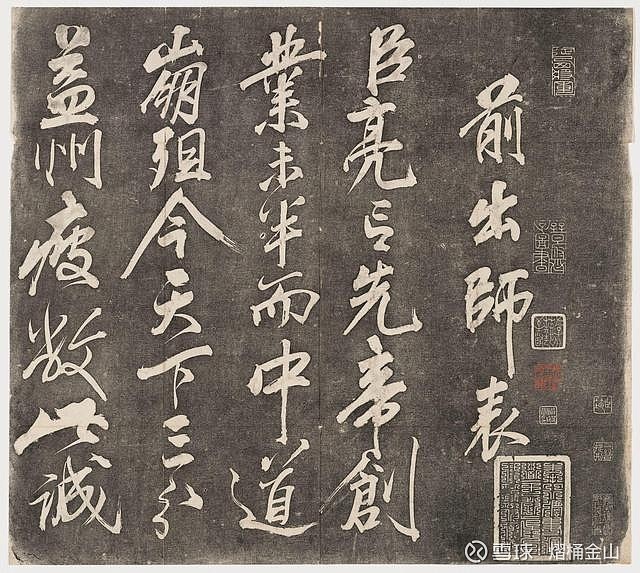 前出師表
臣亮言先帝創
業未半而中道
崩殂今天下三分
益州疲敝此誠
雪球：熠桶金山